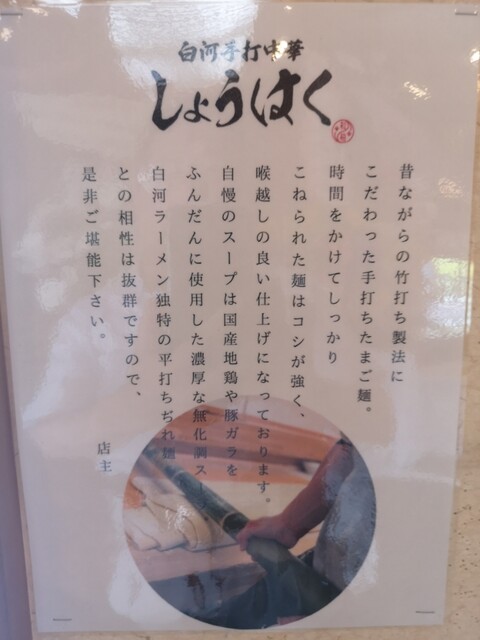 白河手打中華
しょうはく
昔ながらの竹打ち製法に
こだわった手打ちたまご麺。
時間をかけてしっかり
こねられた麺はコシが強く、
喉越しの良い仕上げになっております。
自慢のスープは国産地鶏や豚ガラを
ふんだんに使用した濃厚な無化調ス
白河ラーメン独特の平打ちぢれ麺
との相性は抜群ですので、
是非ご堪能下さい。
店主